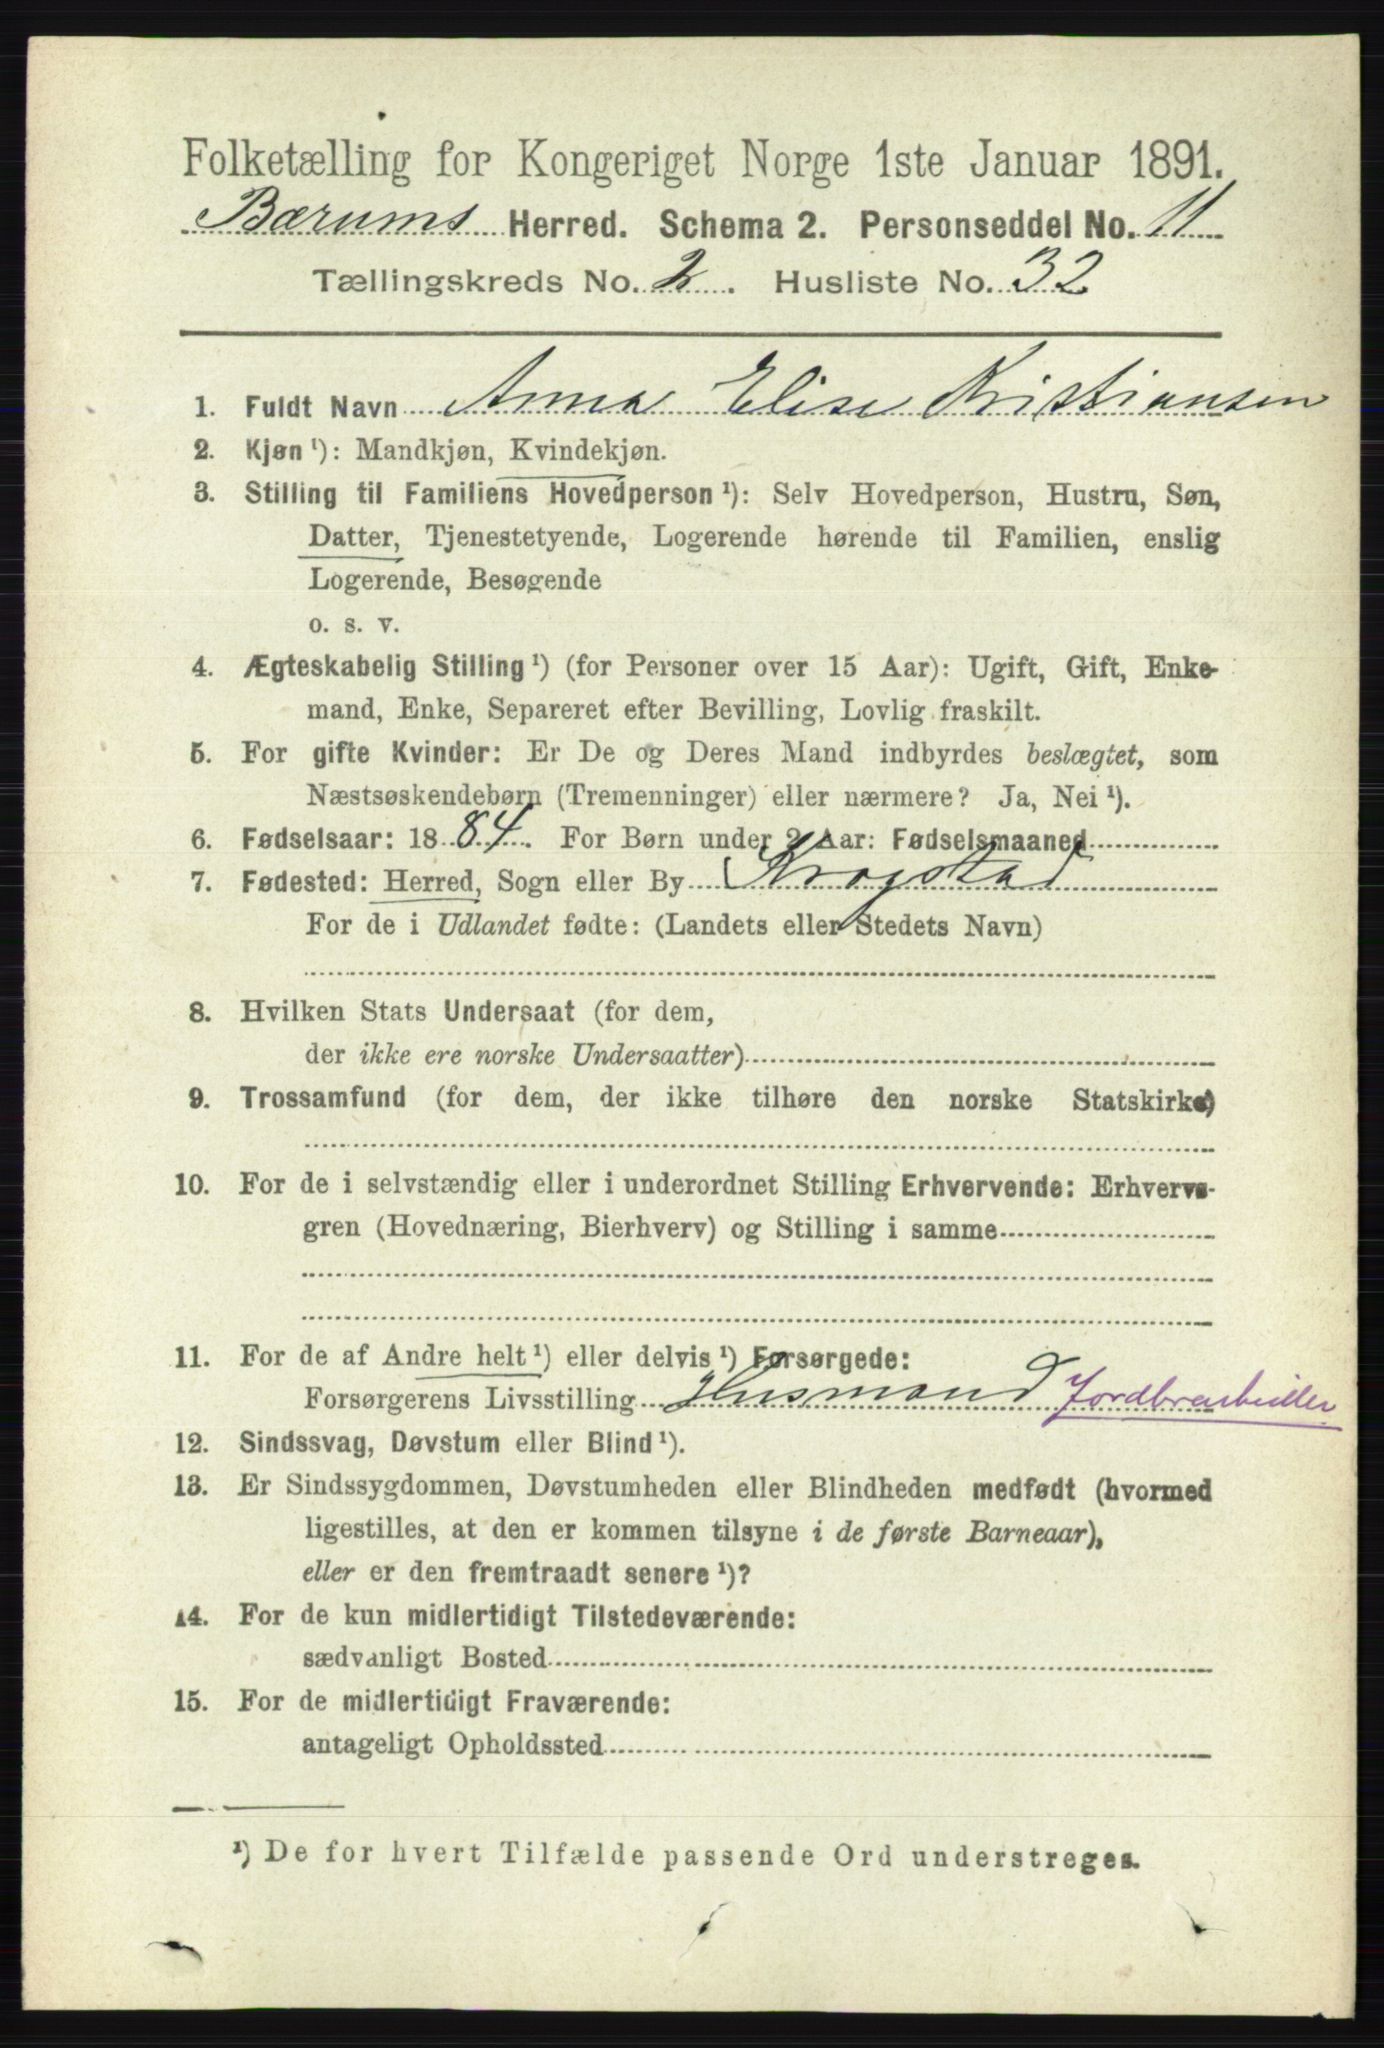 Folketælling for Kongeriget Norge 1ste Januar 1891.
Bærums Herred. Schema 2. Personseddel No. 11
Tællingskreds No. 2. Husliste No. 32
1. Fuldt Navn Anna Elise Kristiansen
2. Kjøn ¹): Mandkjøn, Kvindekjøn.
3. Stilling til Familiens Hovedperson ¹): Selv Hovedperson, Hustru, Søn,
Datter, Tjenestetyende, Logerende hørende til Familien, enslig
Logerende, Besøgende
o. s. v.
4. Ægteskabelig Stilling ¹) (for Personer over 15 Aar): Ugift, Gift, Enke-
mand, Enke, Separeret efter Bevilling, Lovlig fraskilt.
5. For gifte Kvinder: Er De og Deres Mand indbyrdes beslægtet, som
Næstsøskendebørn (Tremenninger) eller nærmere? Ja, Nei ¹).
6. Fødselsaar: 1884. For Børn under 2 Aar: Fødselsmaaned
7. Fødested: Herred, Sogn eller By Krogstad
For de i Udlandet fødte: (Landets eller Stedets Navn)
8. Hvilken Stats Undersaat (for dem,
der ikke ere norske Undersaatter)
9. Trossamfund (for dem, der ikke tilhøre den norske Statskirke)
10. For de i selvstændig eller i underordnet Stilling Erhvervende: Erhvervs-
gren (Hovednæring, Bierhverv) og Stilling i samme
11. For de af Andre helt ¹) eller delvis ¹) Forsørgede:
Forsørgerens Livsstilling Husmand Jordbrarbeider
12. Sindssvag, Døvstum eller Blind ¹).
13. Er Sindssygdommen, Døvstumheden eller Blindheden medfødt (hvormed
ligestilles, at den er kommen tilsyne i de første Barneaar),
eller er den fremtraadt senere ¹)?
14. For de kun midlertidigt Tilstedeværende:
sædvanligt Bosted
15. For de midlertidigt Fraværende:
antageligt Opholdssted
¹) De for hvert Tilfælde passende Ord understreges.